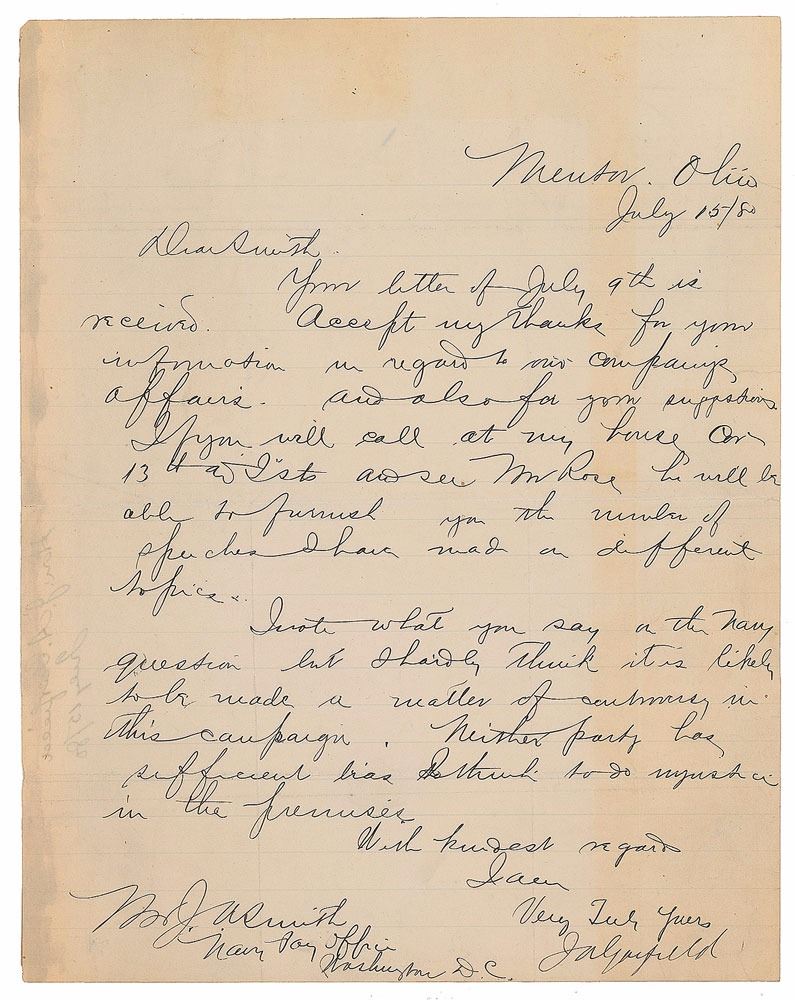 Mentor. Ohio
July 15/80
Dear Smith.
Your letter of July 9th is
received. Accept my thanks for your
information in regard to our campaign
affairs. and also for your suggestions.
If you will call at my house Cor
13th and I Sts and see Mr Rose he will be
able to furnish you the number of
speeches I have made on different
topics.
I note what you say on the Navy
question but I hardly think it is likely
to be made a matter of controversy in
this campaign. Neither party has
sufficient bias to think to do injustice
in the premises
With kindest regards
I am
Very Truly Yours
JA Garfield
Mr J. A Smith
Navy Pay Office
Washington D.C.
July 15/80